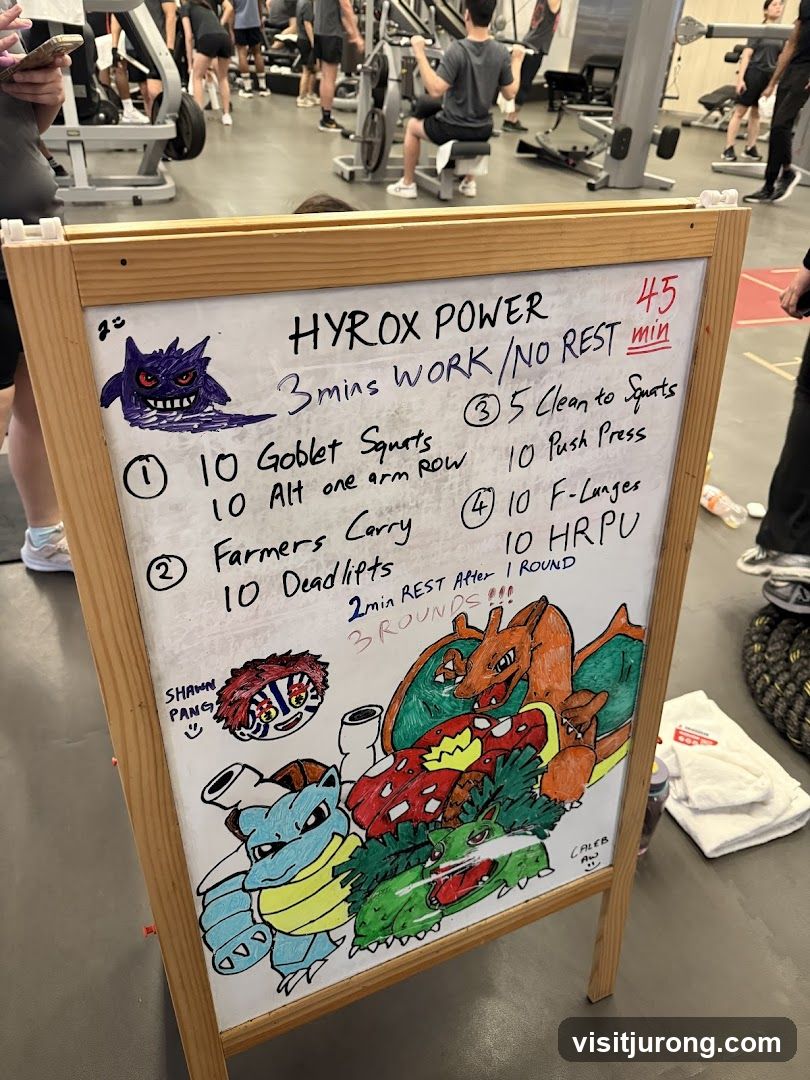 HYROX POWER
45
min
3mins WORK / NO REST
① 10 Goblet Squats
10 Alt one arm ROW
② Farmers Carry
10 Deadlifts
③ 5 Clean to Squats
10 Push Press
④ 10 F-Lunges
10 HRPU
2min REST After 1 ROUND
3 ROUNDS!!!
SHAWN
PANG
CALEB
AW
visitjurong.com